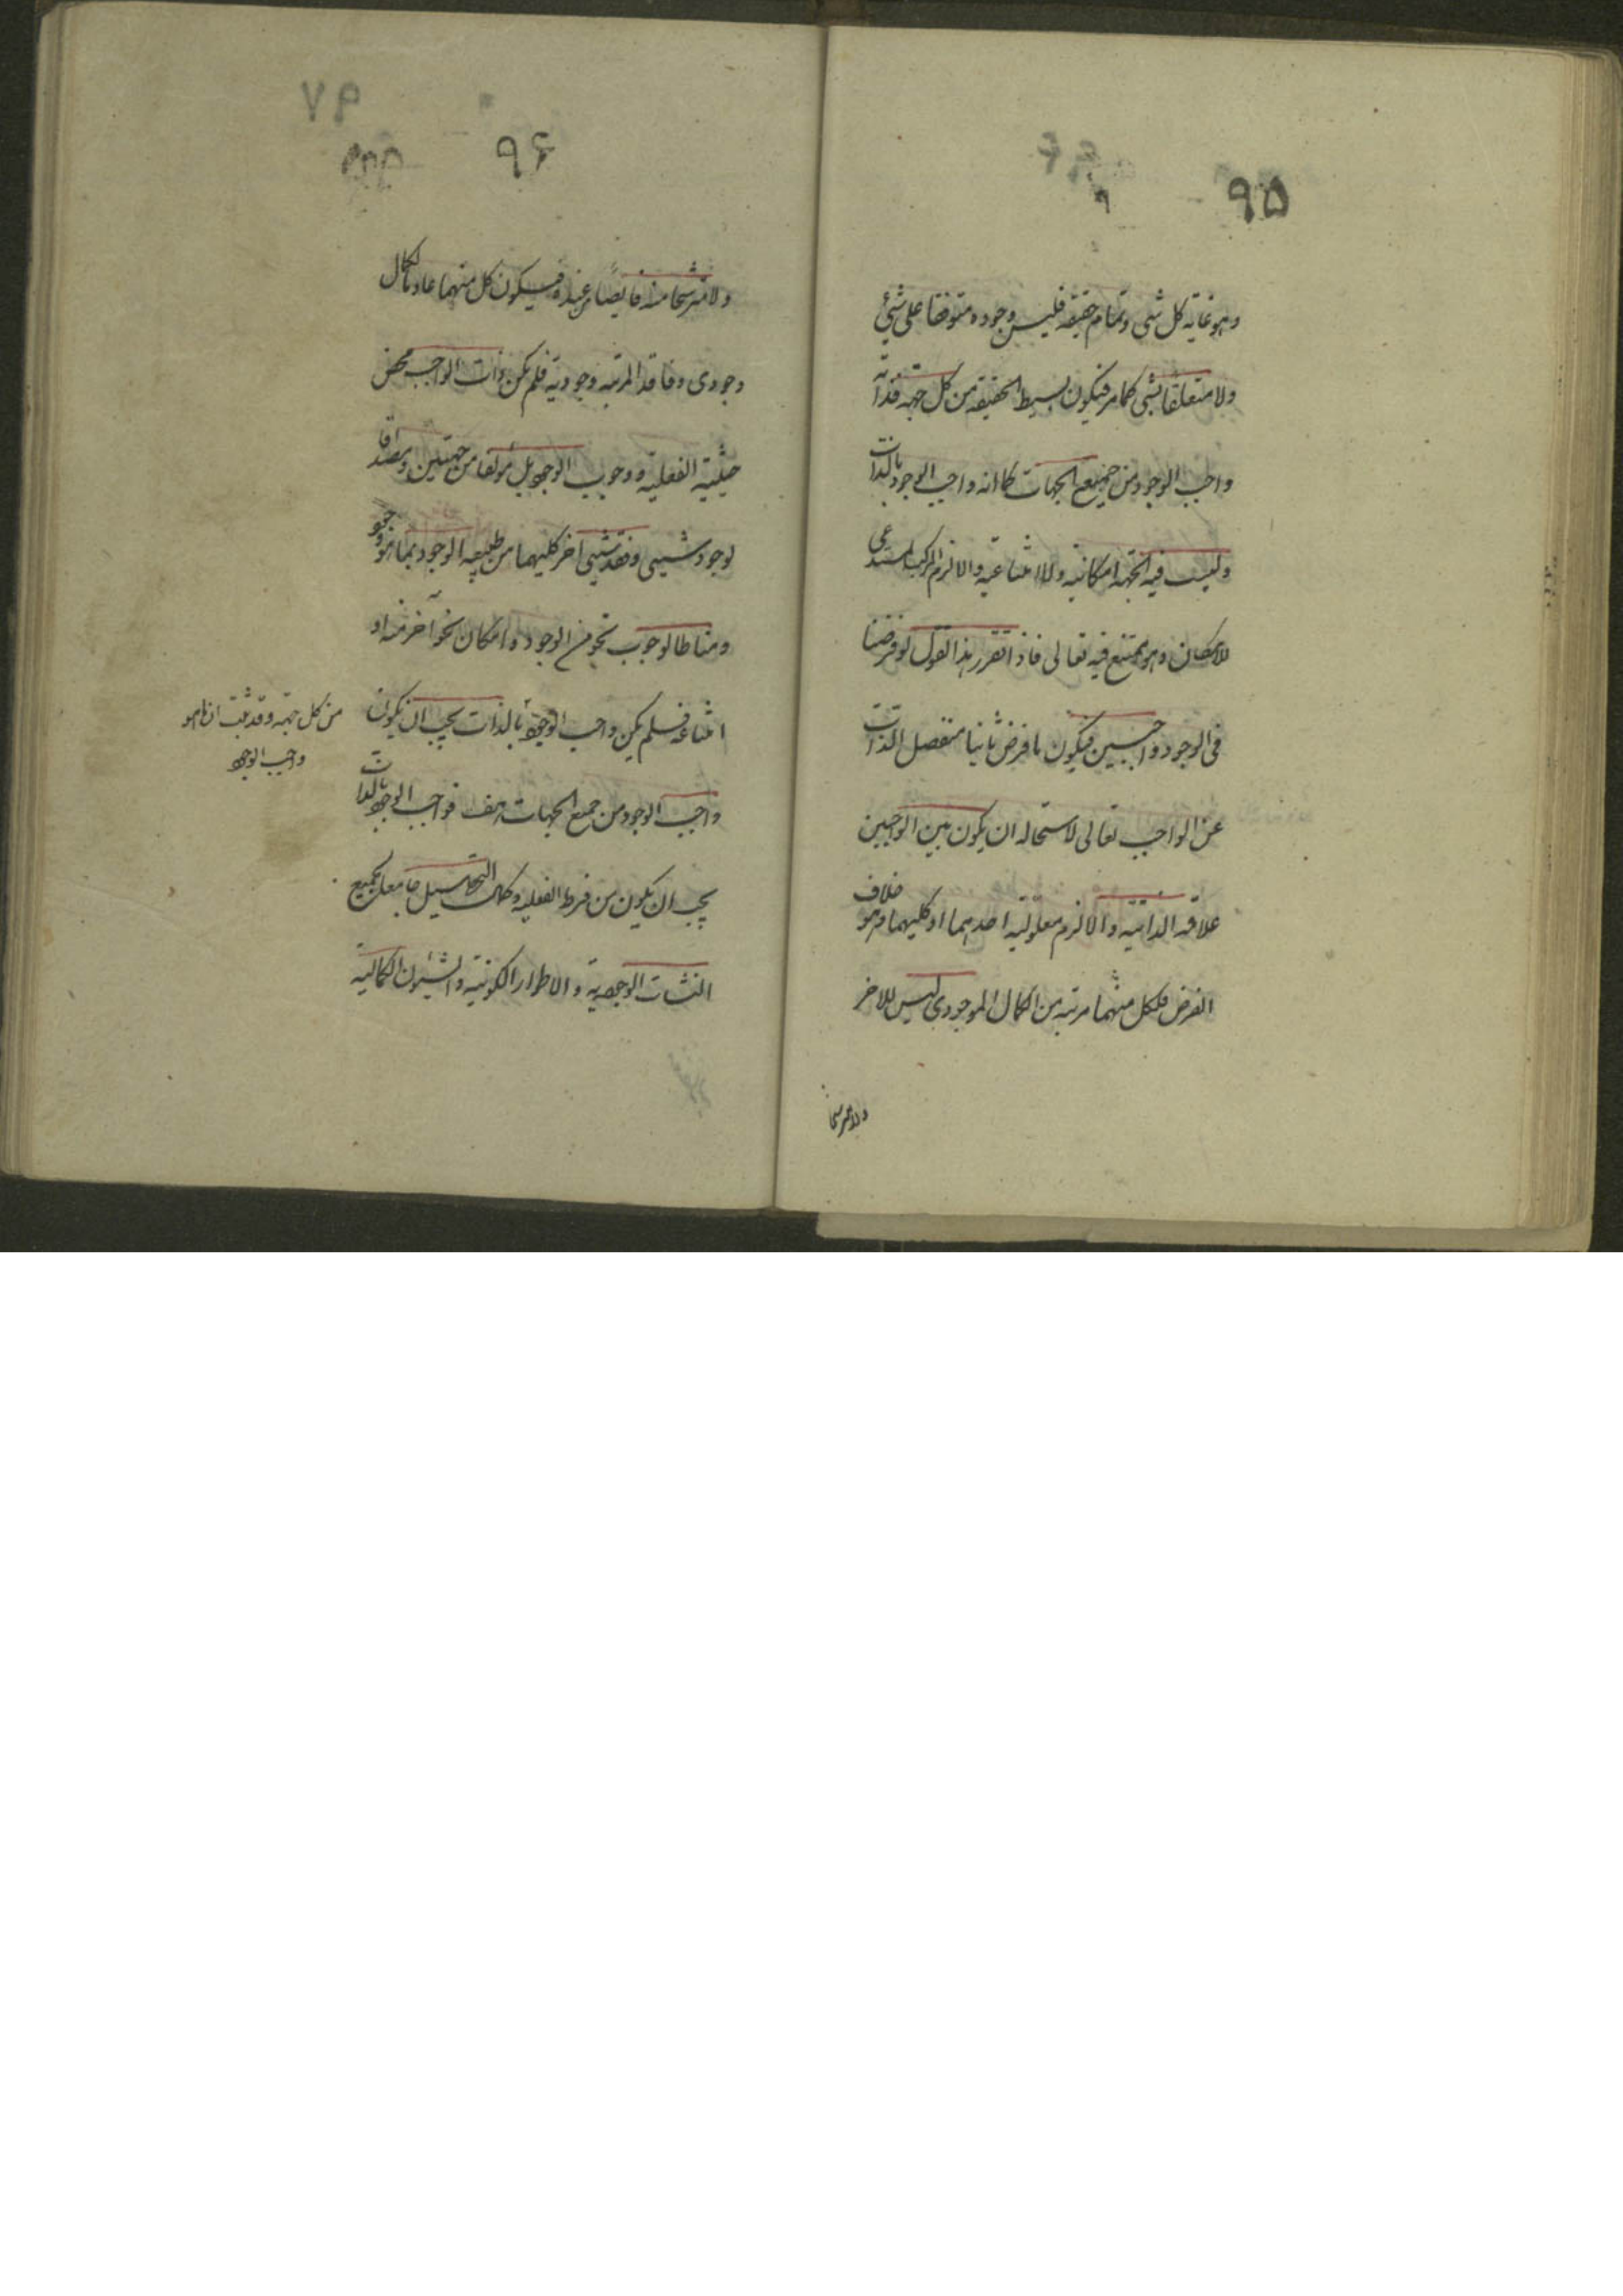 ٩٥
وهو غاية كل شی وتمام حقيقة فليس وجوده متوقفا علی شئ
ولا متعلقا بشی كما مر فيكون بسيط الحقيقة من كل جهة فذاته
واجب الوجود من جميع الجهات كما انه واجب الوجود بالذات
وليست فيه الجهة امكانية ولا امتناعية والا لزم التركيب المستدعی
للامكان وهو ممتنع فيه تعالی فاذ اتقرر هذا القول لو فرضنا
فی الوجود واجبين فيكون ما فرض ثانيا منفصل الذات
عن الواجب تعالی لاستحاله ان يكون بين الواجبين
علاقه الذاتية والا لزم معلولية احدهما او كليهما وهو خلاف
الفرض فلكل منهما مرتبه من الكمال الموجودی ليس للاخر
ولا مترشحا
٩٦
٩٧
ولا مترشحا منه فايضا من عنده فيكون كل منهما عادما لكمال
وجودی وفاقد المرتبه وجودية فلم يكن ذات الواجب محض
حيثية الفعلية ووجوب الوجود بل مؤلفا من جهتين ومصداقا
لوجود شیی وفقد شیی اخر كليهما من طبيعه الوجود بما هو وجود
ومناطا لوجوب نحو من الوجود وامكان نحو آخر منه او
امتناعه فلم يكن واجب الوجود بالذات يجب ان يكون
من كل جهة وقد ثبت ان ما هو
واجب الوجود
واجب الوجود من جميع الجهات هف فواجب الوجود بالذات
يجب ان يكون من فرط الفعلية وكمال التحصيل جامعا لجميع
النشات الوجودية والاطوار الكونية والشئون الكمالية